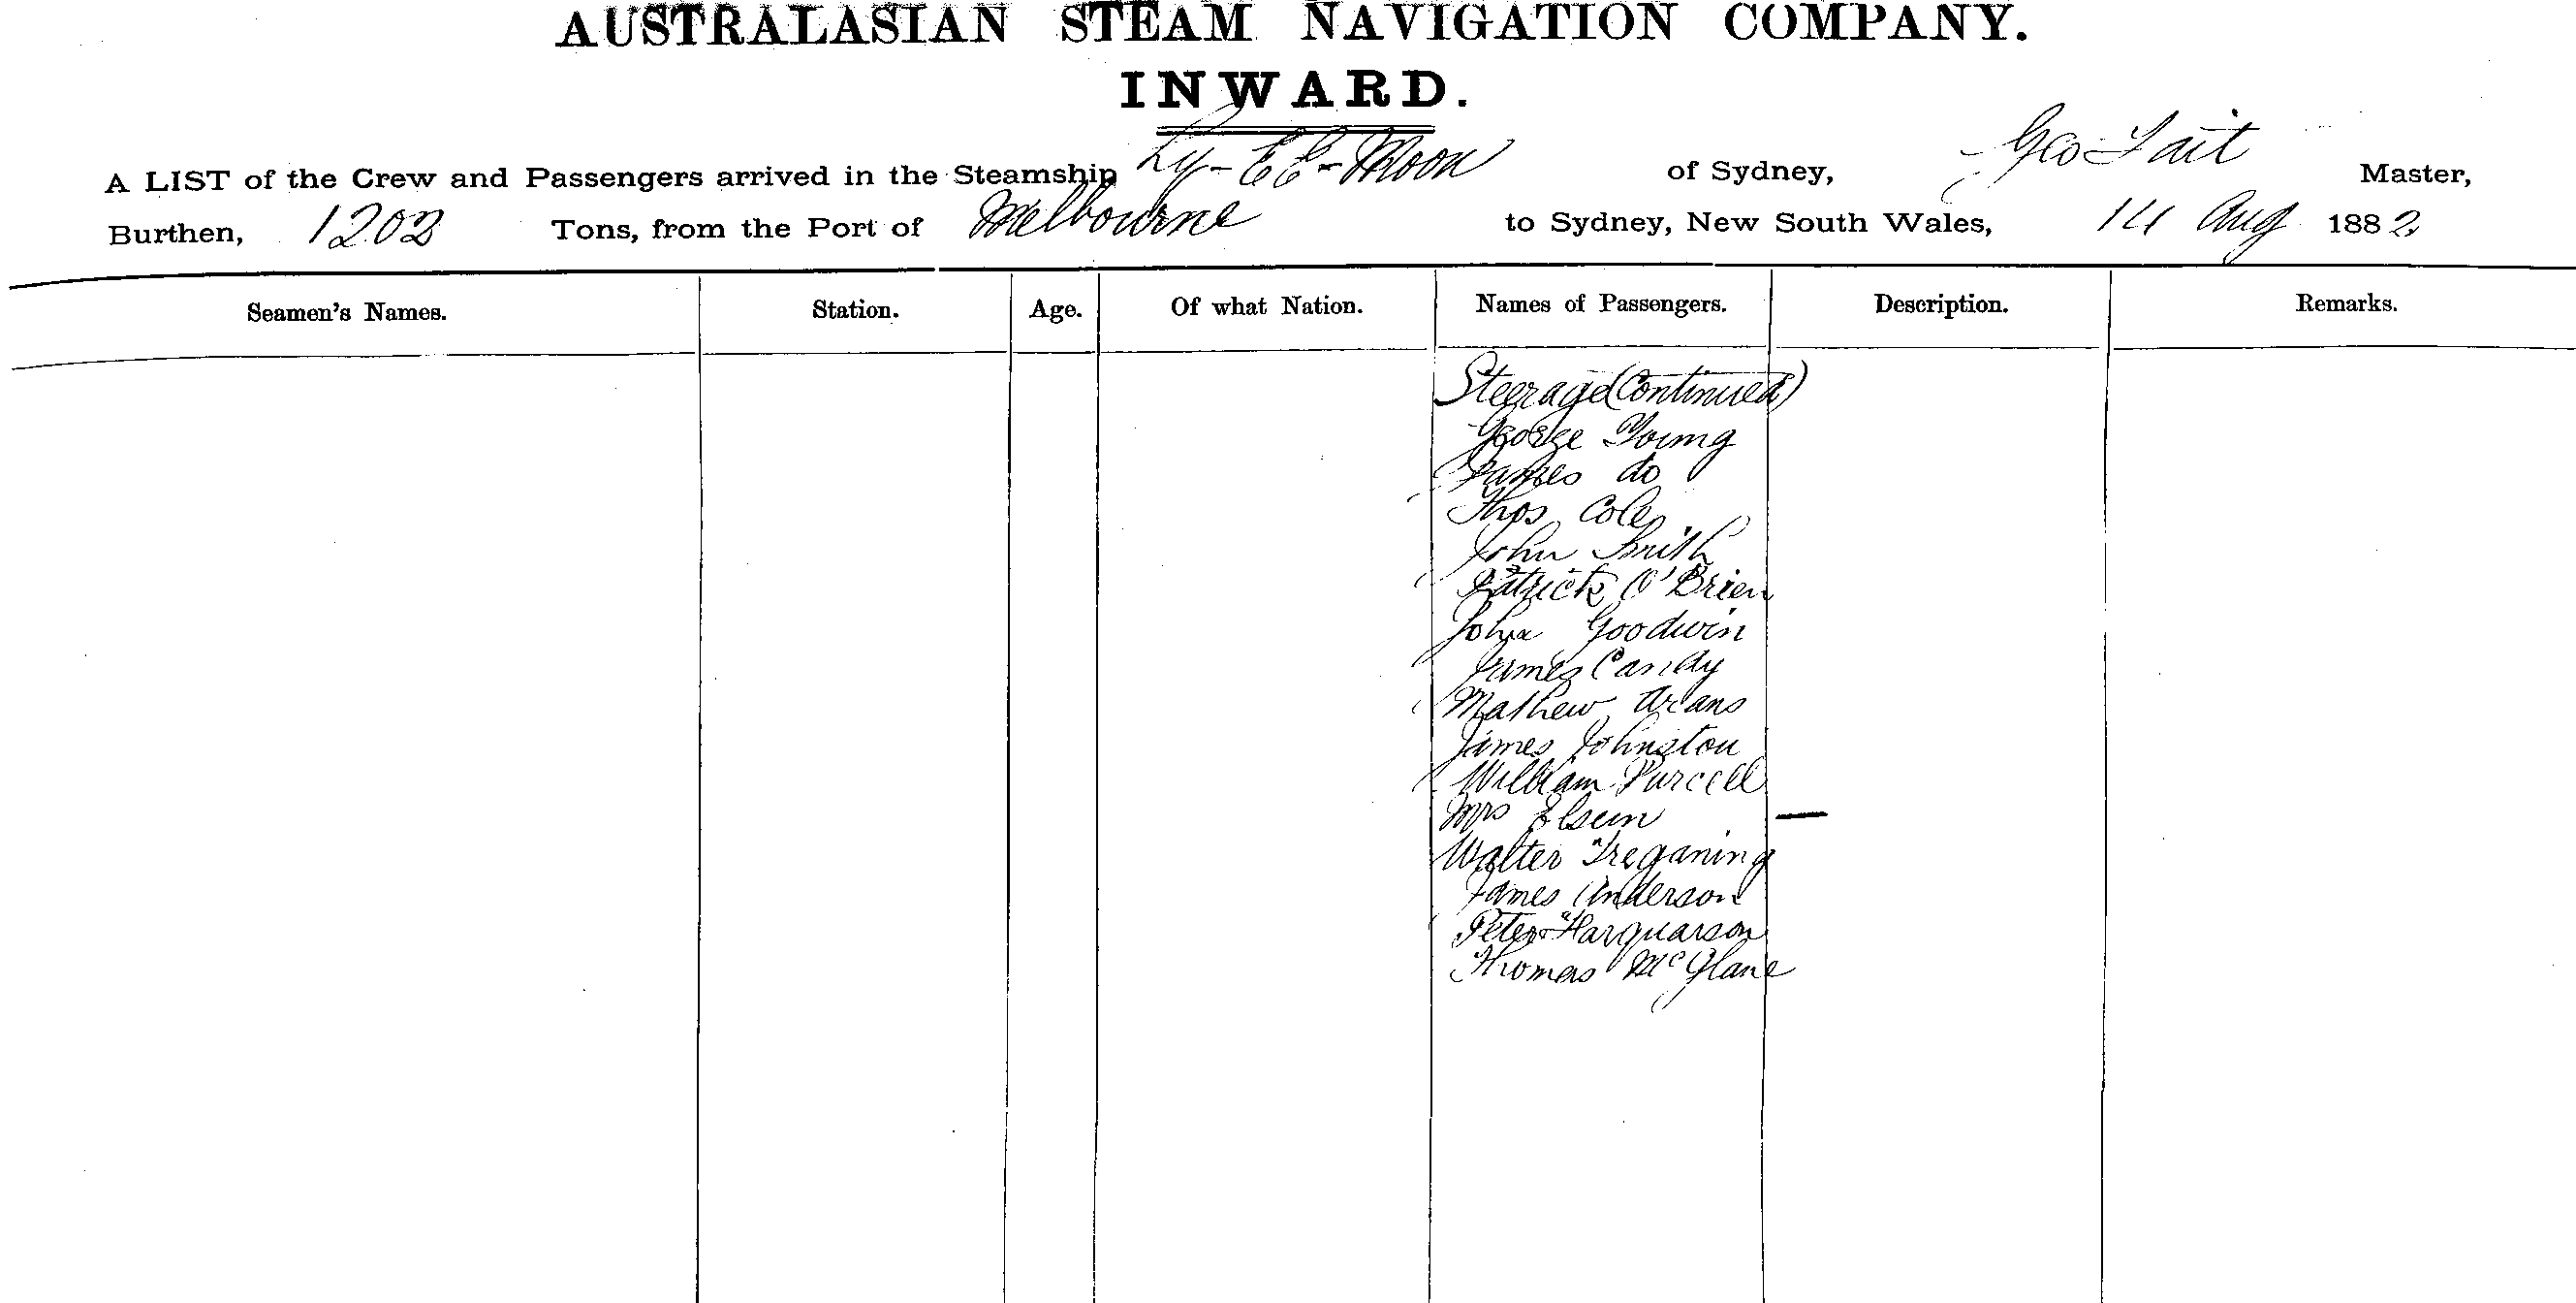 AUSTRALASIAN STEAM NAVIGATION COMPANY.
INWARD.
A LIST of the Crew and Passengers arrived in the Steamship Ly-EE-Moon of Sydney, Geo Tait Master,
Burthen, 1202 Tons, from the Port of Melbourne to Sydney, New South Wales, 14 Aug 1882
Seamen's Names. Station. Age. Of what Nation. Names of Passengers. Description. Remarks.
Steerage (Continued)
George Young
James do
Thos Cole
John Smith
Patrick O'Brien
John Goodwin
James Candy
Mathew
James Johnston
William Purcell
Mrs Elsum —
Walter Treganing
James Anderson
Peter Harquarson
Thomas McGlane